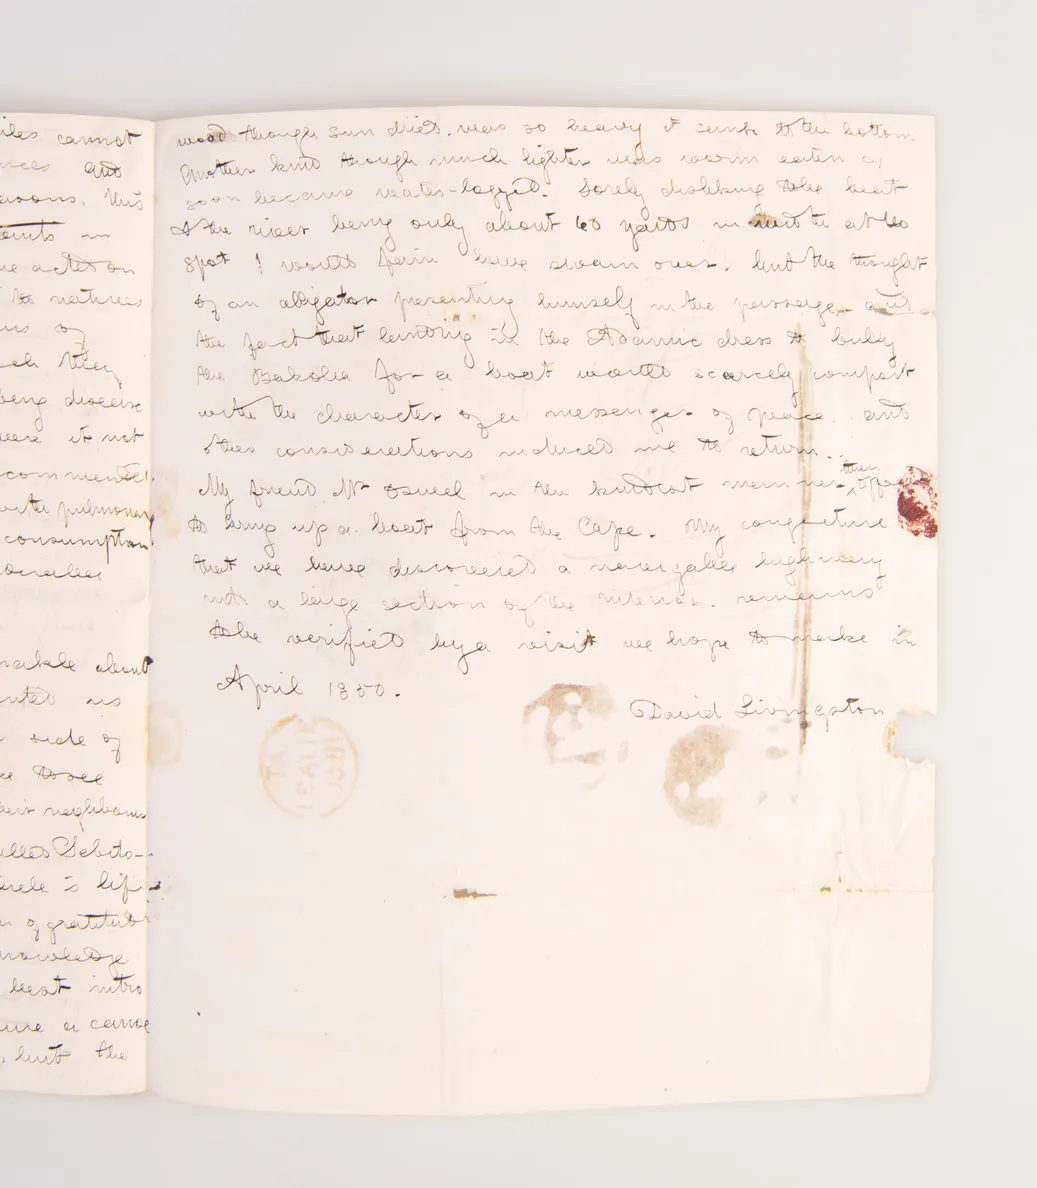 iles cannot
nces and
ersons. This
oints in
e acts on
to natives
ns of
ch they
being disease
were it not
commented.
with pulmonary
consumption
nakle about
nted us
side of
to see
neighbours
alled Sebito-
circle is lif
n of gratitude
nowledge
best intro
ure a canoe
, but the
wood though sun dried, was so heavy it sunk to the bottom
Another kind though much lighter was worm eaten &
soon became water-logged. Sorely disliking to be beat
& the river being only about 60 yards in width at the
spot I would fain have swam over, but the thought
of an alligator presenting himself in the passage and
the fact that landing in the Adamic dress to bully
the Bakoba for a boat would scarcely comport
with the character of a messenger of peace and
other considerations induced me to return.
My friend Mr Oswell in the kindest manner then offered
to bring up a boat from the Cape. My conjecture
that we have discovered a navigable highway
into a large section of the interior remains
to be verified by a visit we hope to make in
April 1850.
David Livingston